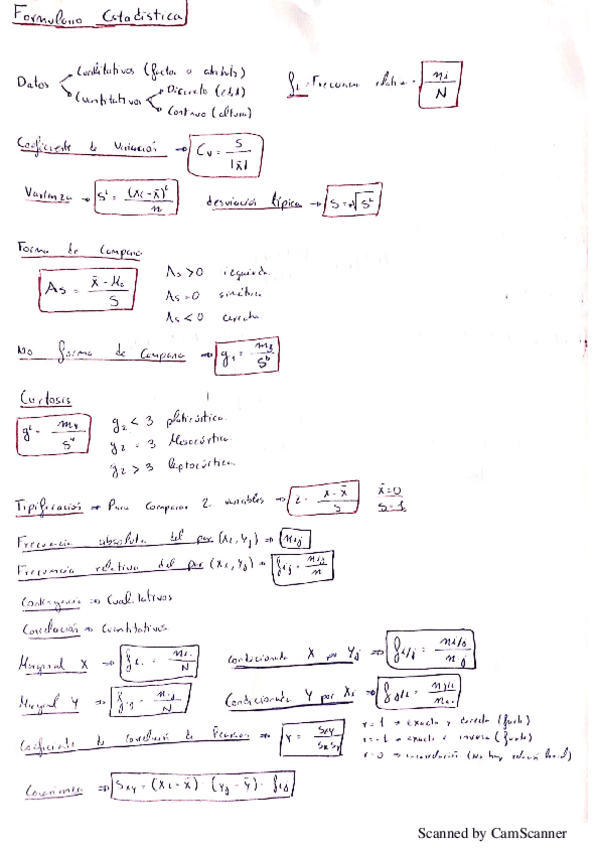 Formulario Estadística
Datos
Cualitativos (factor o atributo)
Cuantitativos
Discreto (edad)
Continuo (altura)
fi: Frecuencia relativa = ni/N
Coeficiente de Variación → Cv = S/|x̄|
Varianza → S² = (xi - x̄)²/n
desviación típica → S = √S²
Forma de Campana
As = (x̄ - Mo)/S
As > 0 izquierda
As = 0 simétrica
As < 0 derecha
No forma de Campana → g1 = m3/S³
Curtosis
g² = m4/S⁴
g2 < 3 platicúrtica
g2 = 3 Mesocúrtica
g2 > 3 leptocúrtica
Tipificación → Para Comparar 2 variables → z = (x - x̄)/S
x̄ = 0
S = 1
Frecuencia absoluta del par (xi, yj) ⇒ nij
Frecuencia relativa del par (xi, yj) ⇒ fij = nij/n
Contingencia ⇒ Cualitativos
Correlación ⇒ Cuantitativos
Marginal X ⇒ fi. = ni./N
Condicionada X por Yj ⇒ fi/j = ni/j/n.j
Marginal Y ⇒ f.j = n.j/N
Condicionada Y por Xi ⇒ fj/i = nj/i/ni.
Coeficiente de Correlación de Pearson ⇒ r = Sxy/SxSy
r = 1 → exacta y directa (fuerte)
r = -1 → exacta e inversa (fuerte)
r = 0 → incorrelación (No hay relación lineal)
Covarianza ⇒ Sxy = (xi - x̄) (yj - ȳ) · fij
Scanned by CamScanner